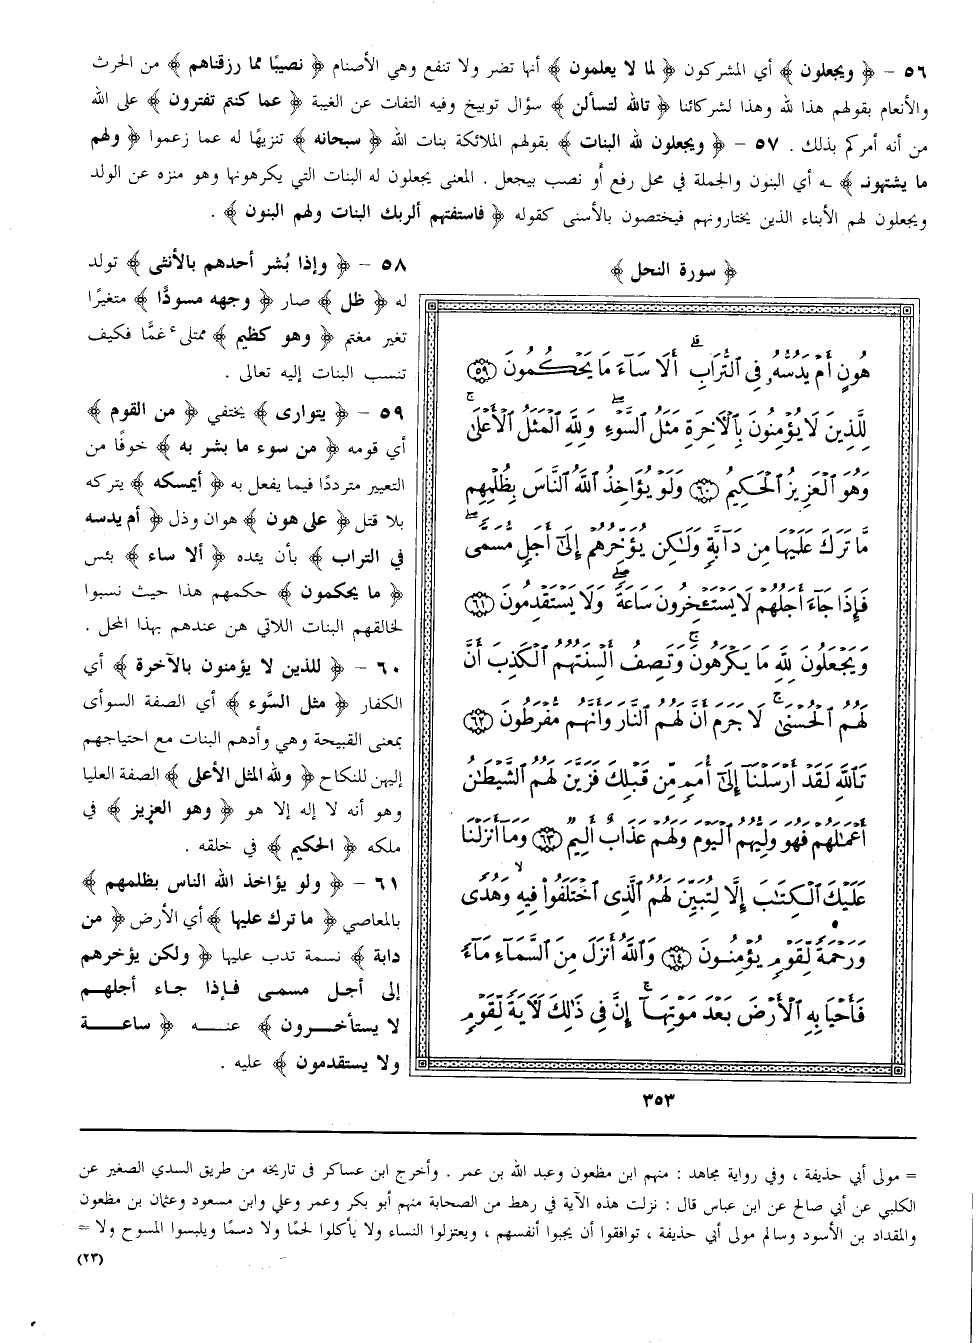 ٥٦ – ﴿ ويجعلون ﴾ أي المشركون ﴿ لما لا يعلمون ﴾ أنها تضر ولا تنفع وهي الأصنام ﴿ نصيبًا مما رزقناهم ﴾ من الحرث
والأنعام بقولهم هذا لله وهذا لشركائنا ﴿ تالله لتسألن ﴾ سؤال توبيخ وفيه التفات عن الغيبة ﴿ عما كنتم تفترون ﴾ على الله
من أنه أمركم بذلك . ٥٧ – ﴿ ويجعلون لله البنات ﴾ بقولهم الملائكة بنات الله ﴿ سبحانه ﴾ تنزيهًا له عما زعموا ﴿ ولهم
ما يشتهونـ ﴾ ـه أي البنون والجملة في محل رفع أو نصب بيجعل . المعنى يجعلون له البنات التي يكرهونها وهو منزه عن الولد
ويجعلون لهم الأبناء الذين يختارونهم فيختصون بالأسنى كقوله ﴿ فاستفتهم ألربك البنات ولهم البنون ﴾ .
﴿ سورة النحل ﴾
هُونٍ أَمْ يَدُسُّهُۥ فِى ٱلتُّرَابِ ۗ أَلَا سَآءَ مَا يَحْكُمُونَ ٥٩
لِلَّذِينَ لَا يُؤْمِنُونَ بِٱلْأَخِرَةِ مَثَلُ ٱلسَّوْءِ ۖ وَلِلَّهِ ٱلْمَثَلُ ٱلْأَعْلَىٰ ۚ
وَهُوَ ٱلْعَزِيزُ ٱلْحَكِيمُ ٦٠ وَلَوْ يُؤَاخِذُ ٱللَّهُ ٱلنَّاسَ بِظُلْمِهِم
مَّا تَرَكَ عَلَيْهَا مِن دَآبَّةٍ وَلَـٰكِن يُؤَخِّرُهُمْ إِلَىٰٓ أَجَلٍ مُّسَمًّى ۖ
فَإِذَا جَآءَ أَجَلُهُمْ لَا يَسْتَـْٔخِرُونَ سَاعَةً ۖ وَلَا يَسْتَقْدِمُونَ ٦١
وَيَجْعَلُونَ لِلَّهِ مَا يَكْرَهُونَ ۚ وَتَصِفُ أَلْسِنَتُهُمُ ٱلْكَذِبَ أَنَّ
لَهُمُ ٱلْحُسْنَىٰ ۚ لَا جَرَمَ أَنَّ لَهُمُ ٱلنَّارَ وَأَنَّهُم مُّفْرَطُونَ ٦٢
تَٱللَّهِ لَقَدْ أَرْسَلْنَآ إِلَىٰٓ أُمَمٍ مِّن قَبْلِكَ فَزَيَّنَ لَهُمُ ٱلشَّيْطَـٰنُ
أَعْمَـٰلَهُمْ فَهُوَ وَلِيُّهُمُ ٱلْيَوْمَ وَلَهُمْ عَذَابٌ أَلِيمٌ ٦٣ وَمَآ أَنزَلْنَا
عَلَيْكَ ٱلْكِتَـٰبَ إِلَّا لِتُبَيِّنَ لَهُمُ ٱلَّذِى ٱخْتَلَفُوا۟ فِيهِ ۙ وَهُدًى
وَرَحْمَةً لِّقَوْمٍ يُؤْمِنُونَ ٦٤ وَٱللَّهُ أَنزَلَ مِنَ ٱلسَّمَآءِ مَآءً
فَأَحْيَا بِهِ ٱلْأَرْضَ بَعْدَ مَوْتِهَآ ۚ إِنَّ فِى ذَٰلِكَ لَأَيَةً لِّقَوْمٍ
٣٥٣
٥٨ – ﴿ وإذا بُشر أحدهم بالأنثى ﴾ تولد
له ﴿ ظل ﴾ صار ﴿ وجهه مسودًّا ﴾ متغيرًا
تغير مغتم ﴿ وهو كظيم ﴾ ممتلىء غمًّا فكيف
تنسب البنات إليه تعالى .
٥٩ – ﴿ يتوارى ﴾ يختفي ﴿ من القوم ﴾
أي قومه ﴿ من سوء ما بشر به ﴾ خوفًا من
التعيير مترددًا فيما يفعل به ﴿ أيمسكه ﴾ يتركه
بلا قتل ﴿ على هون ﴾ هوان وذل ﴿ أم يدسه
في التراب ﴾ بأن يئده ﴿ ألا ساء ﴾ بئس
﴿ ما يحكمون ﴾ حكمهم هذا حيث نسبوا
لخالقهم البنات اللاتي هن عندهم بهذا المحل .
٦٠ – ﴿ للذين لا يؤمنون بالآخرة ﴾ أي
الكفار ﴿ مثل السَّوء ﴾ أي الصفة السوأى
بمعنى القبيحة وهي وأدهم البنات مع احتياجهم
إليهن للنكاح ﴿ ولله المثل الأعلى ﴾ الصفة العليا
وهو أنه لا إله إلا هو ﴿ وهو العزيز ﴾ في
ملكه ﴿ الحكيم ﴾ في خلقه .
٦١ – ﴿ ولو يؤاخذ الله الناس بظلمهم ﴾
بالمعاصي ﴿ ما ترك عليها ﴾ أي الأرض ﴿ من
دابة ﴾ نسمة تدب عليها ﴿ ولكن يؤخرهم
إلى أجل مسمى فإذا جاء أجلهم
لا يستأخرون ﴾ عنه ﴿ ساعة
ولا يستقدمون ﴾ عليه .
= مولى أبي حذيفة ، وفي رواية مجاهد : منهم ابن مظعون وعبد الله بن عمر . وأخرج ابن عساكر فى تاريخه من طريق السدي الصغير عن
الكلبي عن أبي صالح عن ابن عباس قال : نزلت هذه الآية في رهط من الصحابة منهم أبو بكر وعمر وعلي وابن مسعود وعثمان بن مظعون
والمقداد بن الأسود وسالم مولى أبي حذيفة ، توافقوا أن يجبوا أنفسهم ، ويعتزلوا النساء ولا يأكلوا لحمًا ولا دسمًا ويلبسوا المسوح ولا =
(٢٣)